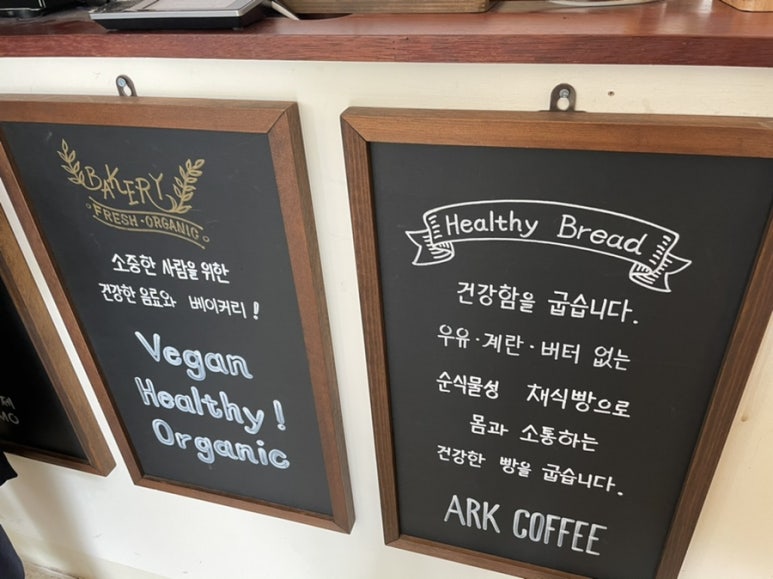 BAKERY
FRESH·ORGANIC
소중한 사람을 위한
건강한 음료와 베이커리!
Vegan
Healthy!
Organic
Healthy Bread
건강함을 굽습니다.
우유·계란·버터 없는
순식물성 채식빵으로
몸과 소통하는
건강한 빵을 굽습니다.
ARK COFFEE